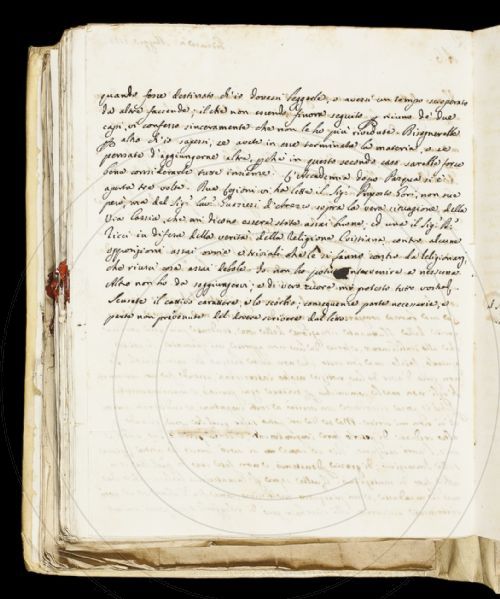 quando fosse destinato ch'io dovessi leggerle, o avessi un tempo scioperato
da altre faccende; il che non essendo finora seguito p niuno de' due
capi, vi confesso sinceramente che non le ho più rivedute. Bisognerebbe
p altro ch'io sapessi, se avete in esse terminata la materia, o se
pensate d'aggiungerne altre, pchè in questo secondo caso sarebbe forse
bene considerarle tutte insieme. L'Accademia dopo Pasqua si è
aperta tre volte. Due vi ha letto il Sig. Proposto Gori, non sue
però, ma del Sig. Guazzesi d'Arezzo sopra la vera situazione della
Via Cassia, che mi dicono essere stata assai buona, ed una il Sig.
Ricci in difesa della verità della Religione Cristiana contro alcune
opposizioni assai ovvie e triviali che le si fanno contro la Religione,
che riuscì cosa assai debole. Io non ho potuto intervenire a nessuna.
Altro non ho da soggiungervi, e di vero cuore mi protesto tutto vostro.
Scusate il cattivo carattere, e lo scritto; conseguenze parte necessarie, e
parte non del dovere scrivere dal letto.